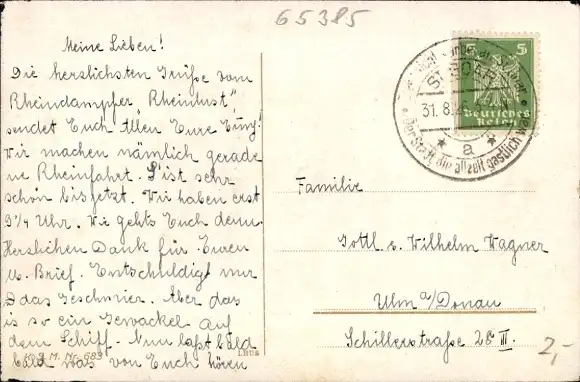 65385
Meine Lieben!
Die herzlichsten Grüße vom
Rheindampfer „Rheinlust“,
sendet Euch Allen Eure
Wir machen nämlich gerade
ne Rheinfahrt. S'ist sehr
schön bis jetzt. Wir haben erst
9¼ Uhr. Wie gehts Euch denn.
Herzlichen Dank für Euren
u. Brief. Entschuldigt nur
das Geschmier. Aber das
is so ein Gewackel auf
dem Schiff. Nun laßt bald
bald was von Euch hören
M. Nr. 683
5
Deutsches
Reich
ST. GOAR
31. 8.
a
Der Stadt die allzeit gastlich
Familie
Gottl. v. Wilhelm Wagner
Ulm a/Donau
Schillerstraße 28 III.
2,-